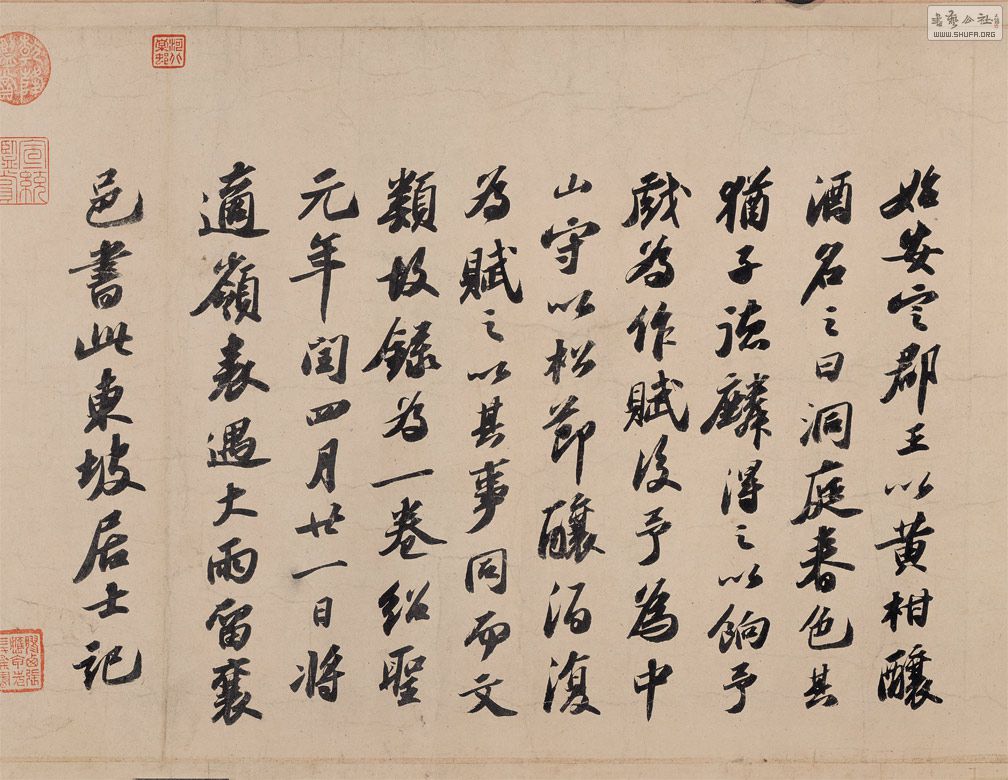 始安定郡王以黄柑釀
酒名之曰洞庭春色其
猶子德麟得之以餉予
戲為作賦後予為中
山守以松節釀酒復
為賦之以其事同而文
類故錄為一卷紹聖
元年閏四月廿一日將
適嶺表遇大雨留襄
邑書此東坡居士記
宣統
WWW.SHUFA.ORG